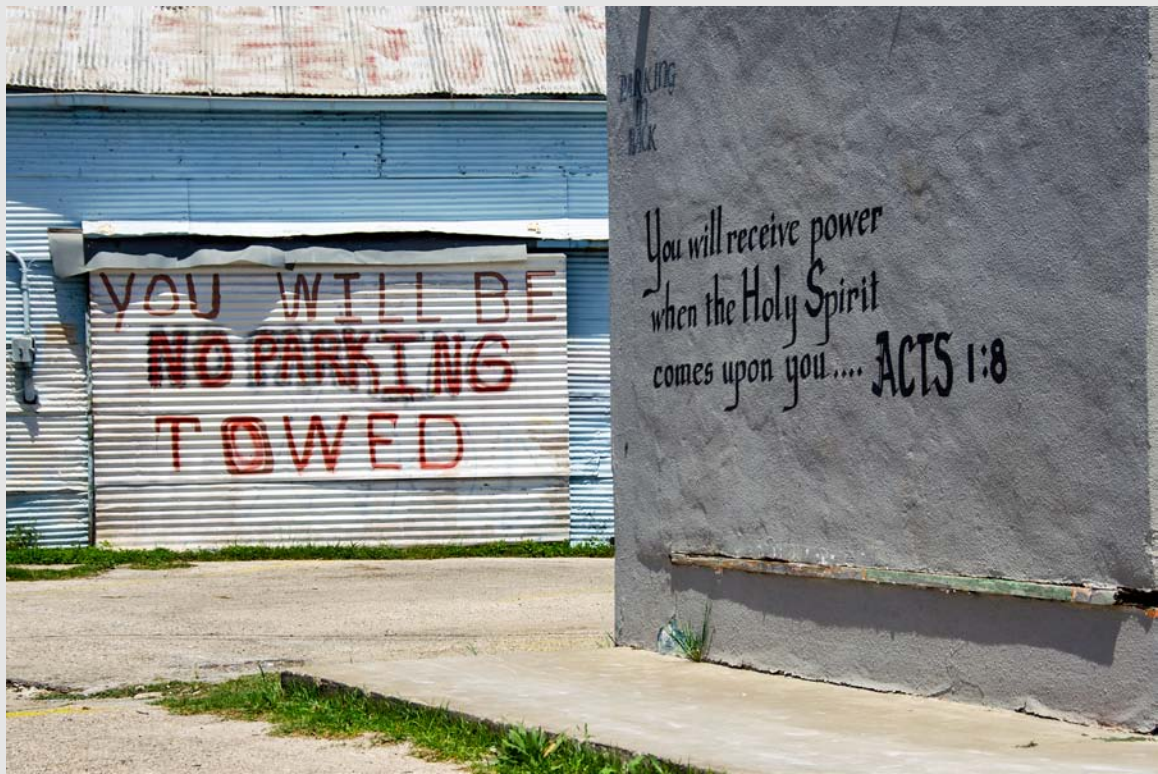 YOU WILL BE
NO PARKING
TOWED
PARKING
IN
BACK
You will receive power
when the Holy Spirit
comes upon you.... ACTS 1:8